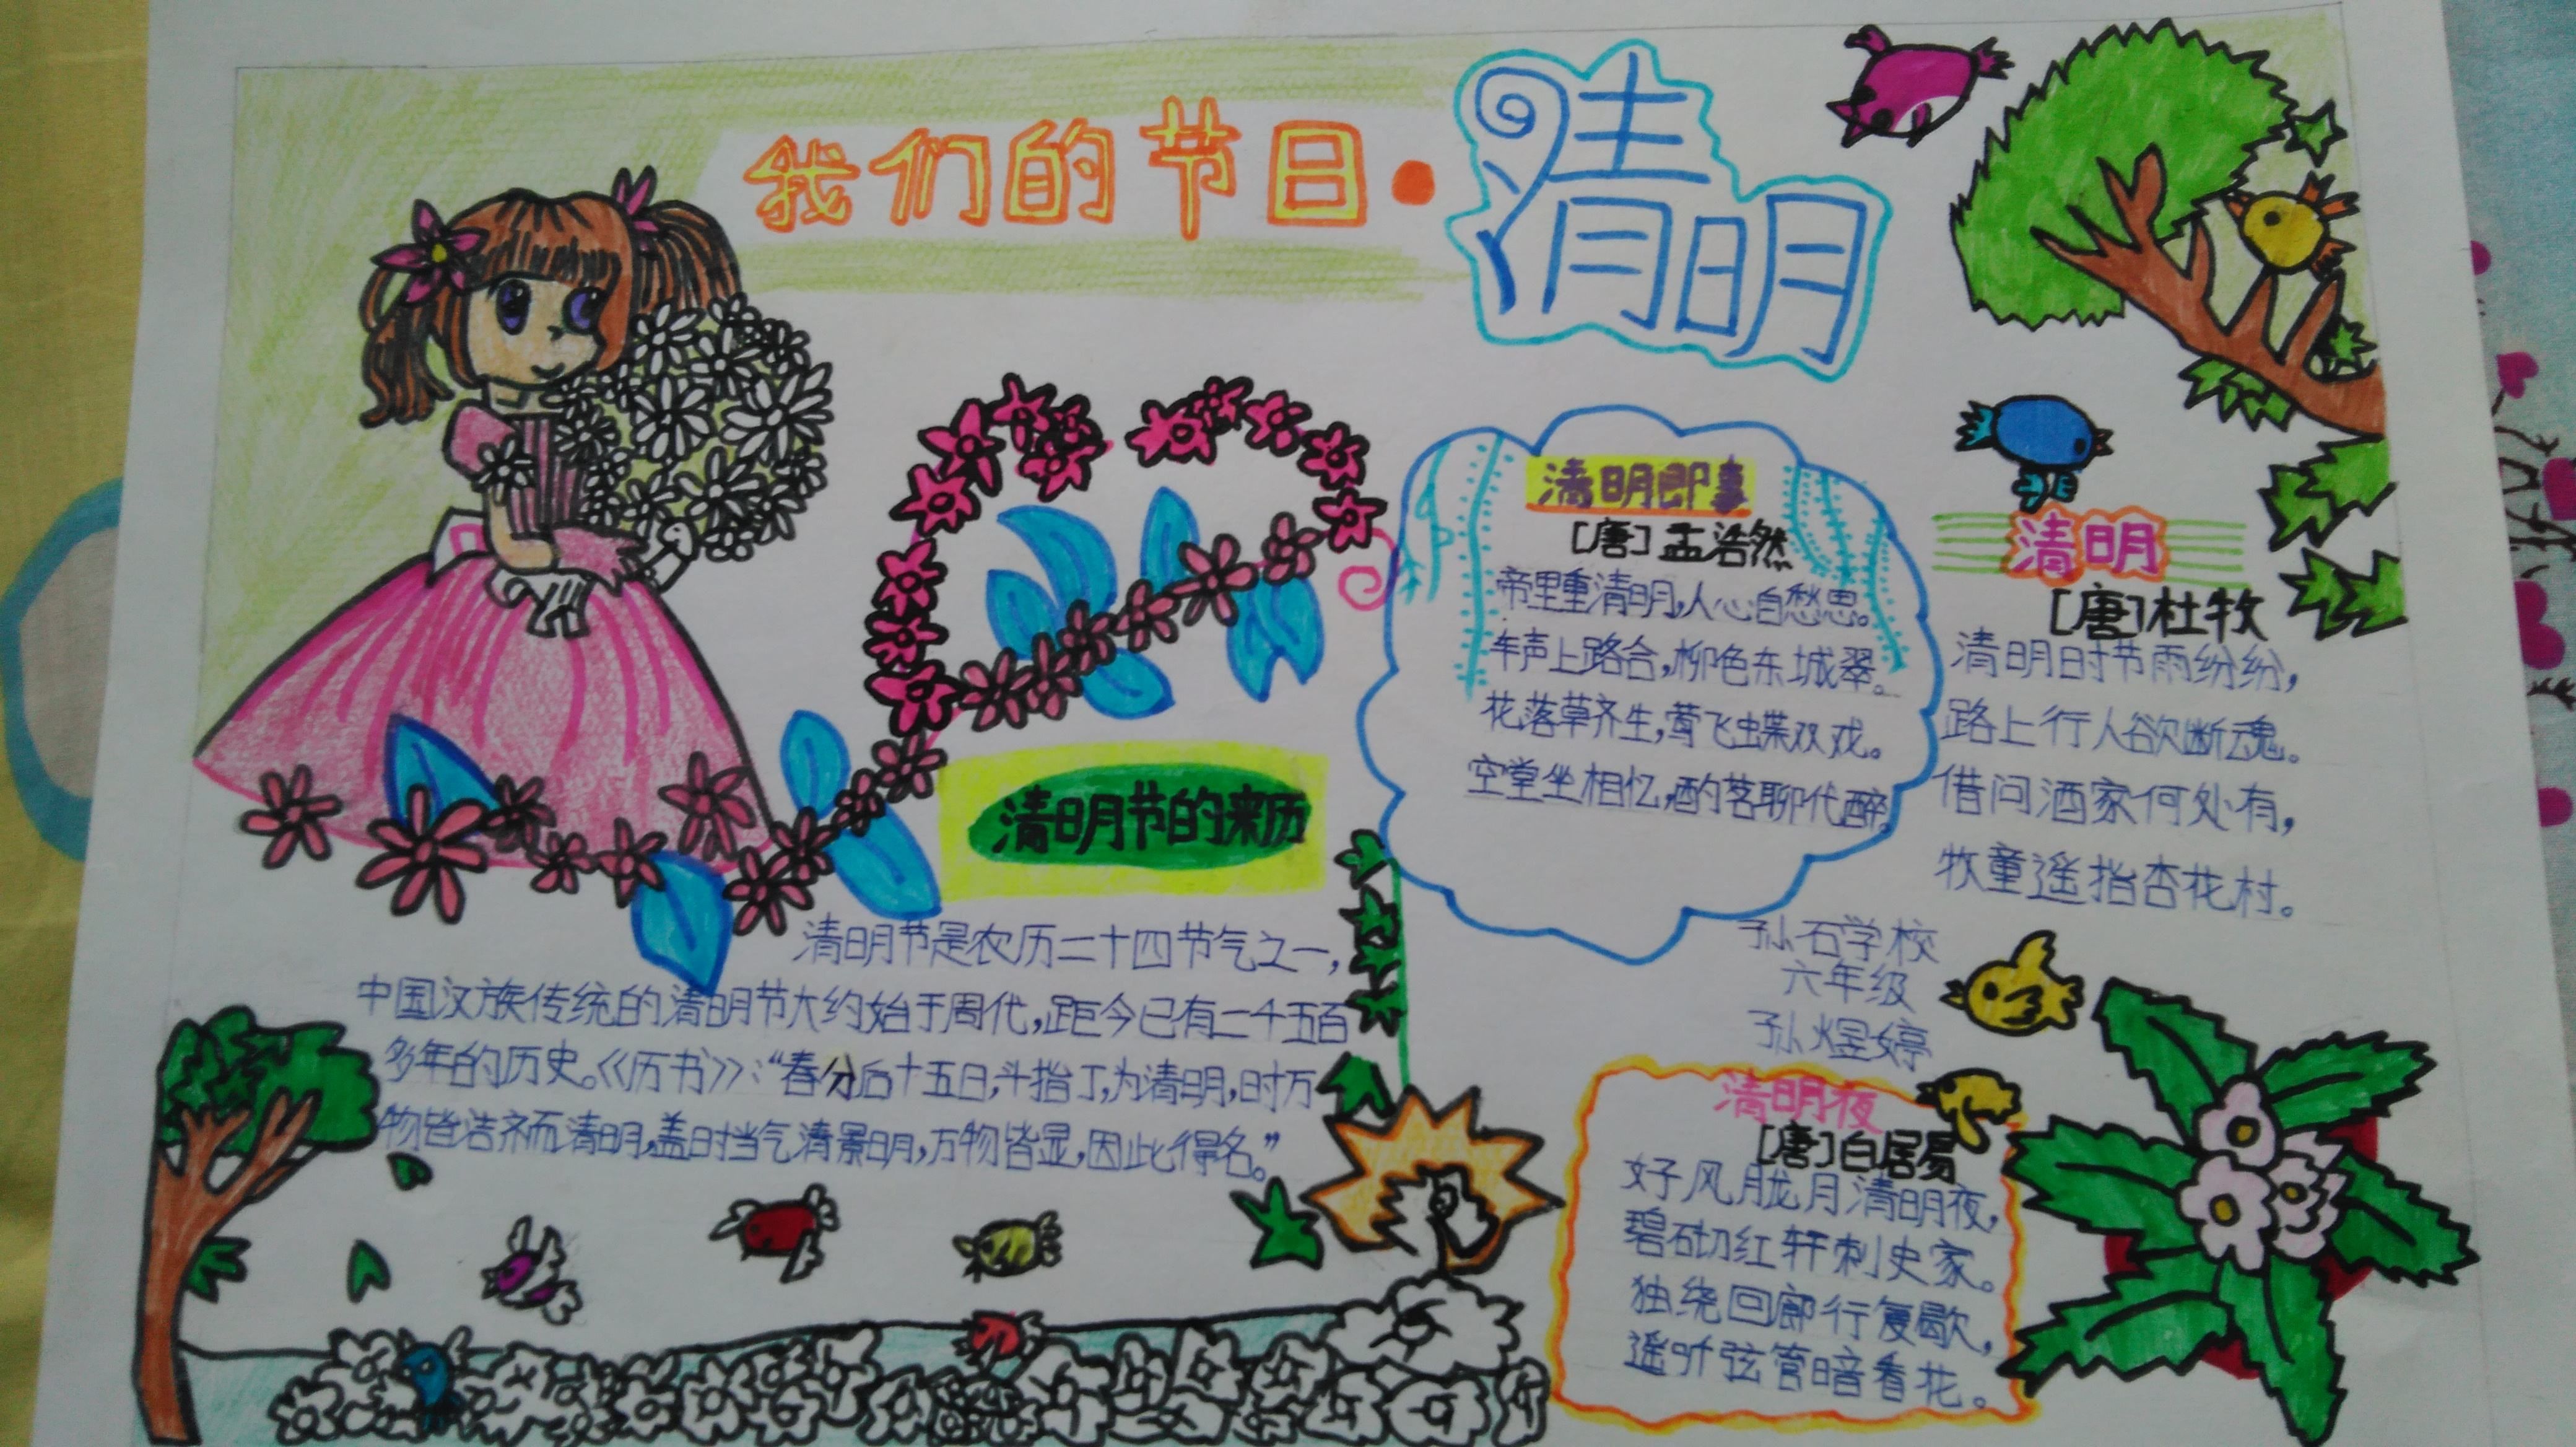 我们的节日·清明
清明节的来历
清明节是农历二十四节气之一，
中国汉族传统的清明节大约始于周代，距今已有二千五百
多年的历史。《历书》：“春分后十五日，斗指丁，为清明，时万
物皆洁齐而清明，盖时当气清景明，万物皆显，因此得名。”
清明即事
[唐]孟浩然
帝里重清明，人心自愁思。
车声上路合，柳色东城翠。
花落草齐生，莺飞蝶双戏。
空堂坐相忆，酌茗聊代醉。
清明
[唐]杜牧
清明时节雨纷纷，
路上行人欲断魂。
借问酒家何处有，
牧童遥指杏花村。
孙石学校
六年级
孙煜婷
清明夜
[唐]白居易
好风胧月清明夜，
碧砌红轩刺史家。
独绕回廊行复歇，
遥听弦管暗看花。